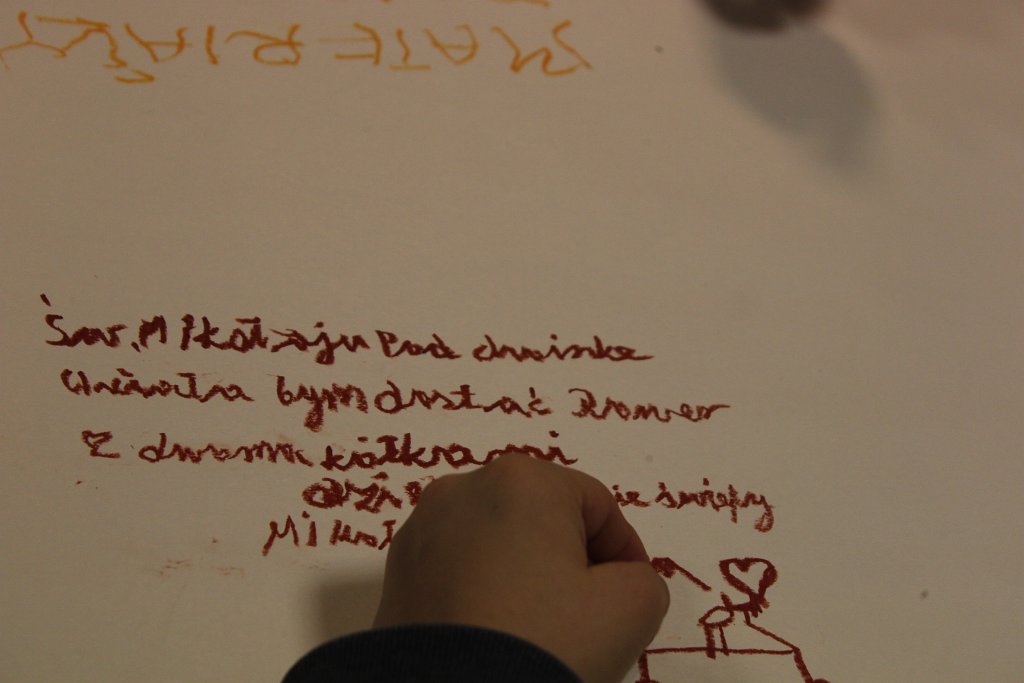 MATERIAŁY
Św. MIkołaju Pod choinke
Chciała bym dostać Rower
Z dwoma kółkami
święty